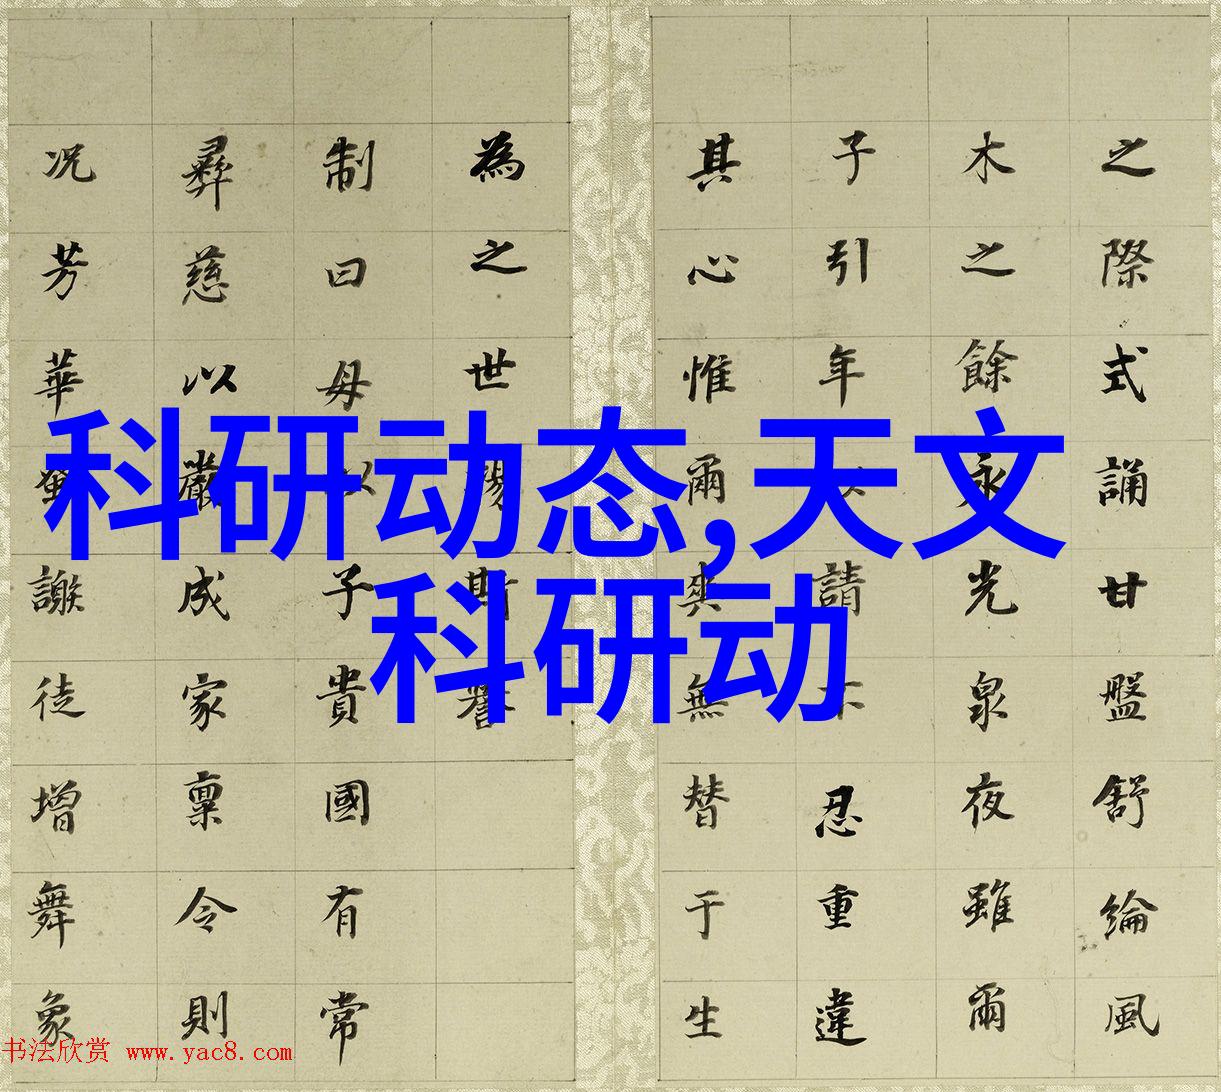 科研动态,天文
科研动
之際式誦甘盤舒綸風
木之餘永光泉夜雖爾
子引年以請不忍重違
其心惟爾爽無替于生
為之世錫斯譽
制曰母以子貴國有常
彝慈以嚴成家稟令則
况芳華蚤謝徒增舞象
书法欣赏 www.yac8.com